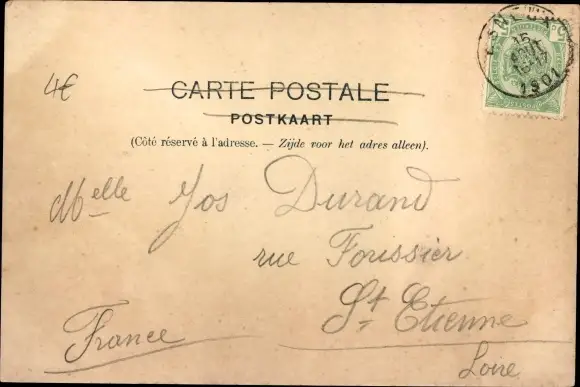 4€
CARTE POSTALE
POSTKAART
(Côté réservé à l'adresse. — Zijde voor het adres alleen).
Melle Jos Durand
rue Foussier
St Etienne
France
Loire
15
1901